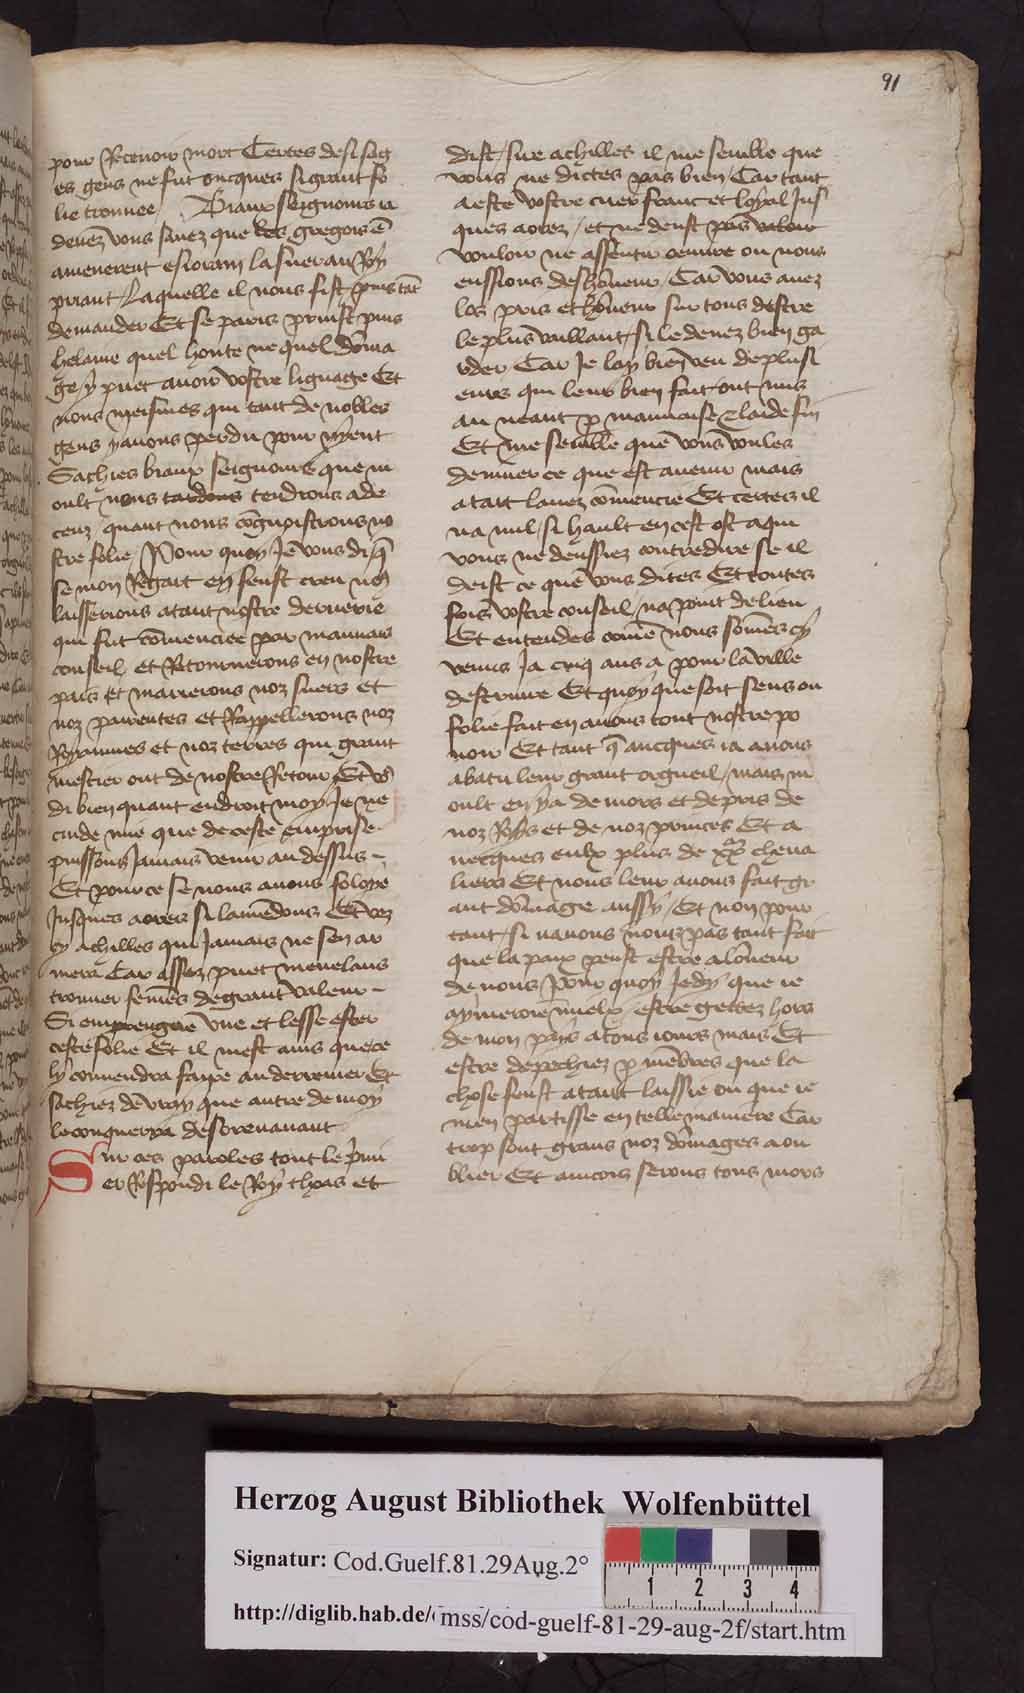 91
pour Recevoir mort Certes de si sag
es gens ne fut oncques si grant fo
lie trouuee / Biaux seignours ia
deuez vous sauez que les gregois ē
amenerent esioram la sueur au Roy
priant / Laquelle il nous fist puis
demander Et se paris prinst puis
helaine quel honte ne quel dōma
ge y puet auoir vostre lignage Et
nous meismes qui tant de nobles
gens y auons perdu pour nyent
Sachies biaux seignours que m
oult nous tardons tendrons a de
ceuz quant nous cōgnoistrons no
stre folie / Pour quoy Je vous di q̄
se mon Regart en feust creu nous
laisserions atant nostre deruerie
qui fut cōmenciee par mauuais
conseil et Retournerons en nostre
pais Et marierons noz suers et
noz parentes et Rappellerons noz
Royaumes et noz terres qui grant
mestier ont de nostre Retour / Et vo
di bien quant endroit moy Je ne
cuide mie que de ceste emprise
puissons Jamais venir au dessus –
Et pour ce se nous auons foloye
Jusques aores si lamēdons Et vez
cy achilles qui Jamais ne sen ar
mera Car assez puet menelaus
trouuer femēs de grant valeur –
Si en prengne vne et lesse ester
ceste folie Et il mest auis que ce
ly conuendra faire au derrenier Et
sachiez de vray que autre de moy
le conquerra desorenauant
Sur ces paroles tout le p̄mi
er Respondi le Roy thoas et
dist / sire achilles il me semble que
vous ne dictes pas bien / Car tant
a este vostre cuer franc et loyal Jus
ques aorez / et ne deust pas valoir
vouloir ne assentir oeuure ou nous
eussions deshōneur / Car vous auez
los pris et hōneur sur tous destre
le plus vaillant / si le deuez bien ga
rder Car Je lay bien veu de plusi
eurs qui leur bien fait ont mis
au neant p mauuaise & laide fin
Et me semble que vous voules
deuiner ce que est auenir mais
a tart lauez cōmencie Et certes il
na nul / si hault en cest ost a qui
vous ne deussiez contredire / se il
deist ce que vous dites Et toutes
fois vostre conseil / na point de lieu
Et entendes cōme nous sōmes cy
venus Ja cinq ans a pour la ville
destruire Et quoy que soit sens ou
folie fait en auons tout nostre po
uoir Et tant q̄ aucques ia auons
abatu leur grant orgueil / mais m
oult en y a de mors et de pris de
noz Roys et de noz princes Et a
uecques eulx plus de cheua
liers Et nous leur auons fait gr
ant dōmage aussy / Et non pour
tant / si nauons nous pas tant fait
que la paix peust estre a lōneur
de nous / Pour quoy Je dy que ie
aymeroie mielx estre gettez hors
de mon pays a tous iours mais Et
estre depechiez p mēbres que la
chose feust atant laissie ou que ie
men partisse en telle maniere Car
trop sont grans noz dōmages a ou
blier Et aincois serons tous mors
Herzog August Bibliothek Wolfenbüttel
Signatur: Cod.Guelf.81.29Aug.2°
http://diglib.hab.de/mss/cod-guelf-81-29-aug-2f/start.htm
1 2 3 4